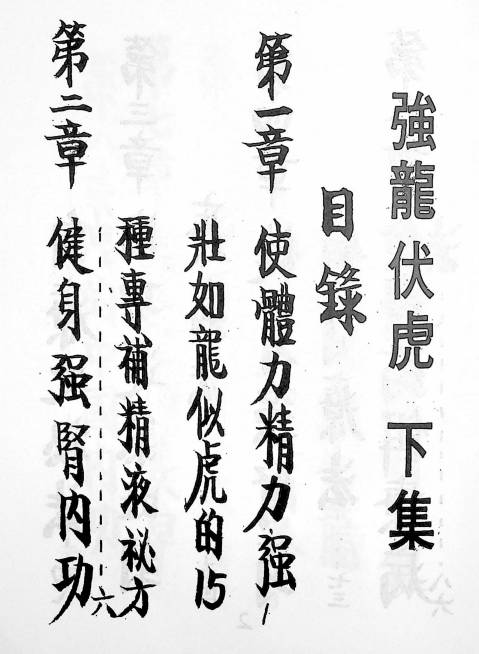 強龍伏虎 下集
目錄
第一章 使體力精力强
壯如龍似虎的15
種專補精液祕方
第二章 健身强腎内功
六